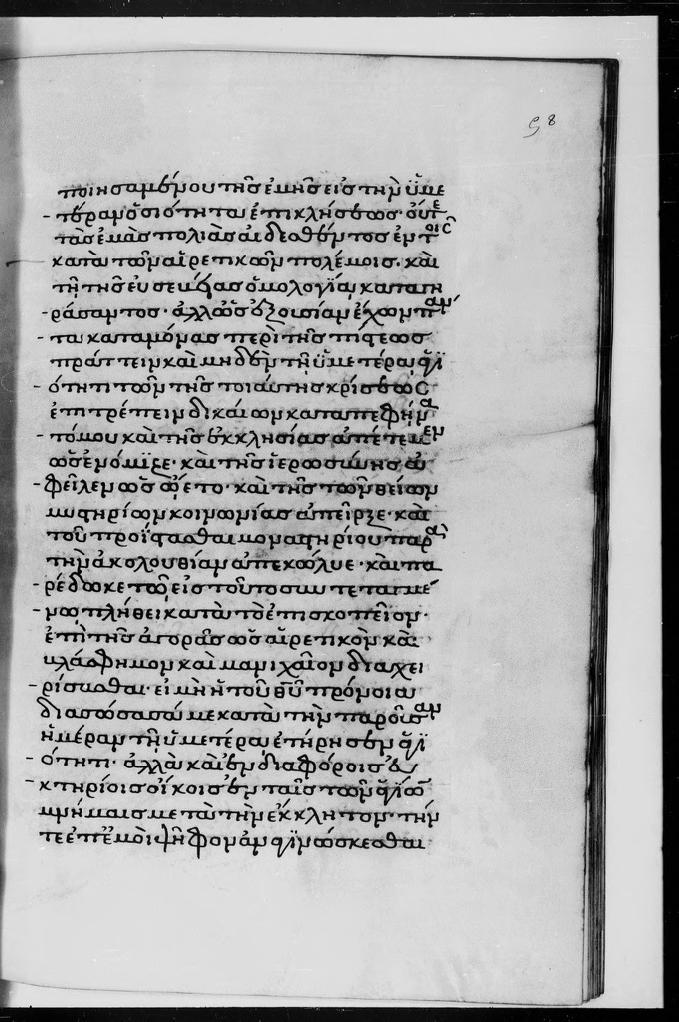 58
ποιησαμένου τῆς ἐμῆς εἰς τὴν ὑμε
τέραν ὁσιότητα ἐπικλήσεως· οὔτε
τὰς ἐμὰς πολιὰς αἰδεσθέντος ἐν τοῖς
κατὰ τῶν αἱρετικῶν πολέμοις· καὶ
τῇ τῆς εὐσεβείας ὁμολογίᾳ καταγη
ράσαντος· ἀλλ' ὡς ἐξουσίαν ἔχων πάν
τα καταμόνας περὶ τῆς πίστεως
πράττειν καὶ μηδὲν τῇ ὑμετέρᾳ ἁγι
ότητι τῶν τῆς τοιαύτης κρίσεως
ἐπιτρέπειν δικαίων καταπεφήνα
τό μου καὶ τῆς ἐκκλησίας ἀπέτεμεν
ὡς ἐνόμιζε· καὶ τῆς ἱερωσύνης ἀ
φεῖλεν ὡς ᾤετο· καὶ τῆς τῶν θείων
μυστηρίων κοινωνίας ἀπεῖρξε· καὶ
τοῦ προΐστασθαι μοναστηρίου παρὰ
τὴν ἀκολουθίαν ἀπεκώλυε· καὶ πα
ρέδωκε τῷ εἰς τοῦτο συντεταγμέ
νῳ πλήθει κατὰ τὸ ἐπισκοπεῖον·
ἐπὶ τῆς ἀγορᾶς ὡς αἱρετικὸν καὶ
βλάσφημον καὶ μανιχαῖον διαχει
ρίσασθαι· εἰ μὴ ἡ τοῦ θῦ πρόνοια
διασώσασά με κατὰ τὴν παροῦσαν
ἡμέραν τῇ ὑμετέρᾳ ἐτήρησεν ἁγι
ότητι· ἀλλὰ καὶ ἐν διαφόροις εὐ
κτηρίοις οἴκοις ἐν ταῖς τῶν ἁγίων
μνήμαις μετὰ τὴν ἔκκλητον· τήν
τε ἐπ' ἐμοὶ ψῆφον ἀναγινώσκεσθαι